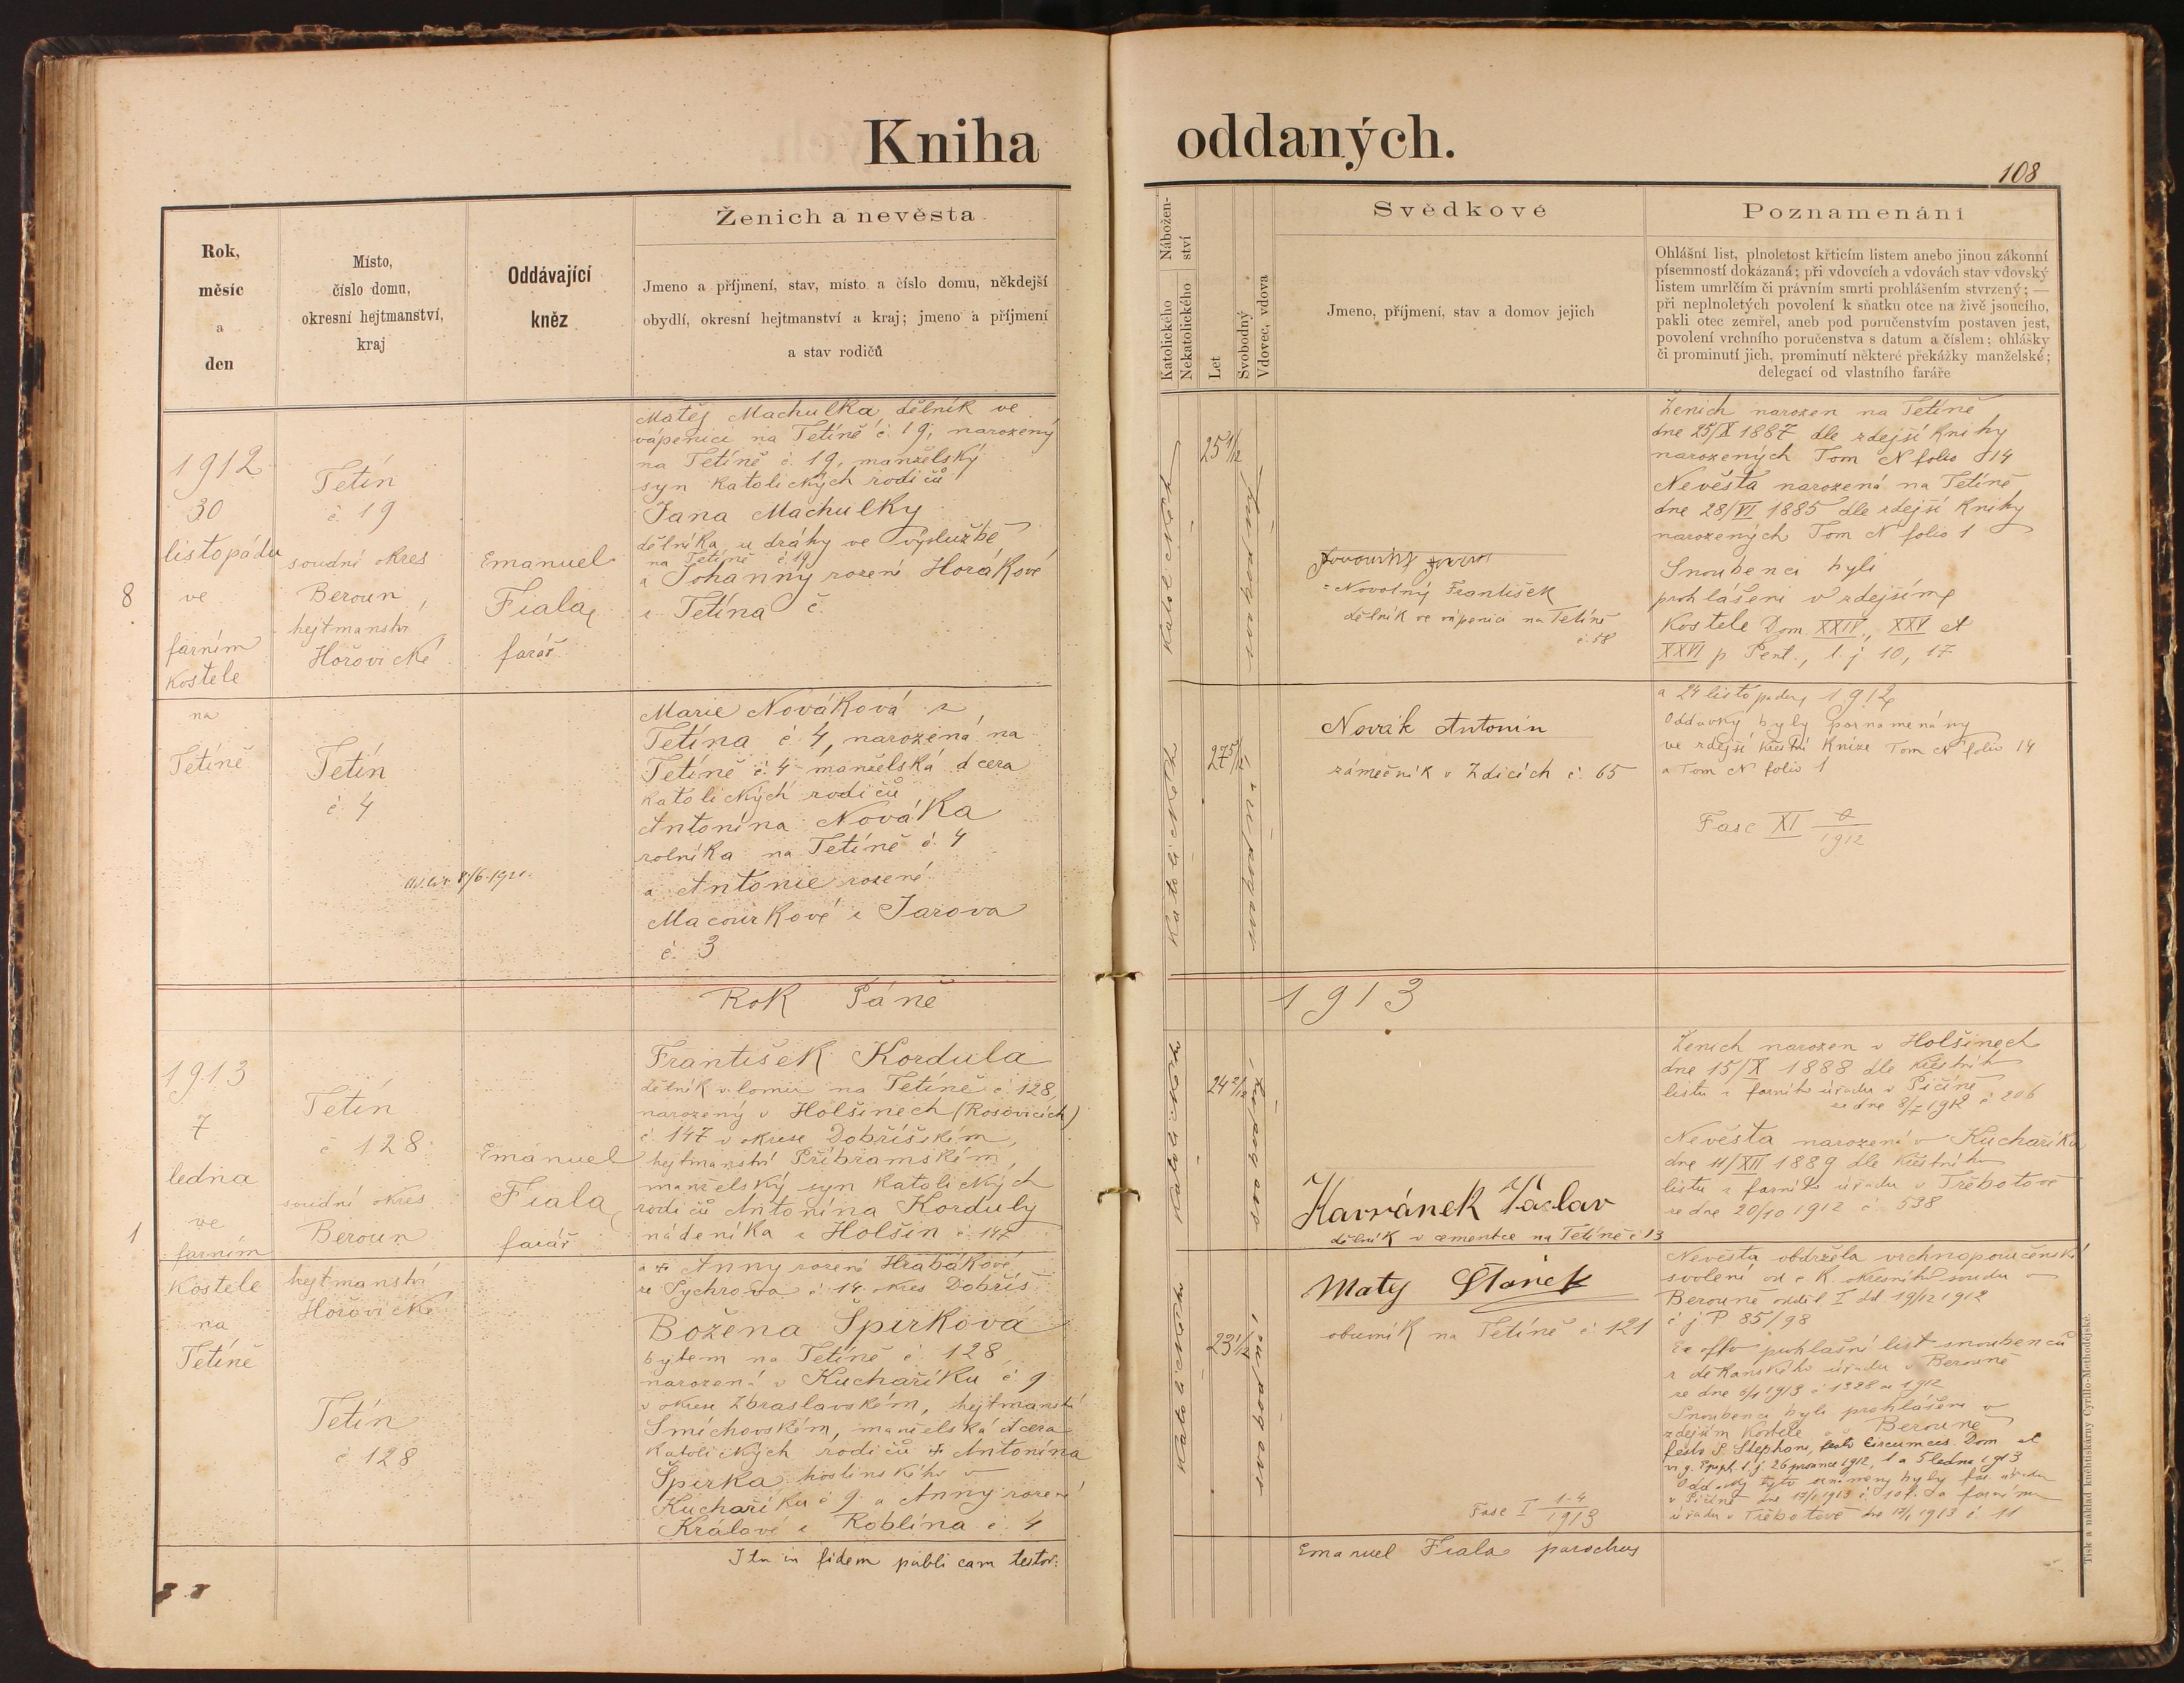 Kniha oddaných.
108
Rok,
měsíc
a
den
Místo,
číslo domu,
okresní hejtmanství,
kraj
Oddávající
kněz
Ženich a nevěsta
Jmeno a příjmení, stav, místo a číslo domu, někdejší
obydlí, okresní hejtmanství a kraj; jmeno a příjmení
a stav rodičů
Nábožen-
ství
Katolického
Nekatolického
Let
Svobodný
Vdovec, vdova
Svědkové
Jmeno, příjmení, stav a domov jejich
Poznamenání
Ohlášní list, plnoletost křticím listem anebo jinou zákonní
písemností dokázaná; při vdovcích a vdovách stav vdovský
listem umrlčím či právním smrti prohlášením stvrzený; —
při neplnoletých povolení k sňatku otce na živě jsoucího,
pakli otec zemřel, aneb pod poručenstvím postaven jest,
povolení vrchního poručenstva s datum a číslem; ohlášky
či prominutí jich, prominutí některé překážky manželské;
delegací od vlastního faráře
8
1912
30
listopadu
ve
farním
Kostele
na
Tetíně
Tetín
č. 19
soudní okres
Beroun,
hejtmanství
Hořovické
Tetín
č. 4
Emanuel
Fiala,
farář
Matěj Machulka, dělník ve
vápenici na Tetíně č. 19, narozený
na Tetíně č. 19, manželský
syn Katolických rodičů
Jana Machulky
dělníka u dráhy ve výslužbě
na Tetíně č. 19
a Johanny rozené Horákové
z Tetína č.
Marie Nováková z
Tetína č. 4, narozená na
Tetíně č. 4 manželská dcera
Katolických rodičů
Antonína Nováka
rolníka na Tetíně č. 4
a Antonie rozené
Macourkové z Jarova
č. 3
25 1/12
27 5/12
Novotný František
dělník ve vápenici na Tetíně
č. 18
Novák Antonín
zámečník v Zdicích č. 65
Ženich narozen na Tetíně
dne 25/X 1887 dle zdejší Knihy
narozených Tom N folio 14
Nevěsta narozená na Tetíně
dne 28/VI 1885 dle zdejší Knihy
narozených Tom N folio 1
Snoubenci byli
prohlášeni v zdejším
Kostele Dom. XXIV, XXV et
XXVI p. Pent., t. j. 10., 17
a 24 listopadu 1912
Oddavky byly poznamenány
ve zdejší křestní Knize Tom N folio 14
a Tom N folio 1
Fasc XI
1912
Rok Páně 1913
1
1913
7
ledna
ve
farním
Kostele
na
Tetíně
Tetín
č 128
soudní okres
Beroun
hejtmanství
Hořovické
Tetín
č. 128
Emanuel
Fiala,
farář
František Kordula
dělník v lomu na Tetíně č. 128,
narozený v Holšinech (Rosovicích)
č. 147 v okrese Dobříšském,
hejtmanství Příbramském,
manželský syn Katolických
rodičů Antonína Korduly
nádeníka z Holšin č. 147
a Anny rozené Hrabákové
ze Sychrova č. 14 okres Dobříš
Božena Špirková
bytem na Tetíně č. 128,
narozená v Kuchaříku č 9
v okrese Zbraslavském, hejtmanství
Smíchovském, manželská dcera
Katolických rodičů Antonína
Špirka hostinského v
Kuchaříku č 9 a Anny rozené
Králové z Roblína č. 4
24 2/12
23 1/12
Havránek Václav
dělník v cementce na Tetíně č 13
Matěj Staněk
obuvník na Tetíně č 121
Fasc I 1-4
1913
Ženich narozen v Holšinech
dne 15/X 1888 dle křestního
listu z farního úřadu v Pičíně
ze dne 8/7 1912 č 206
Nevěsta narozená v Kuchaříku
dne 11/XII 1889 dle křestního
listu z farního úřadu v Třebotově
ze dne 20/10 1912 č. 538
Nevěsta obdržela vrchnoporučenské
svolení od c. k. okresního soudu v
Berouně odděl. I dd. 19/12 1912
č j P 85/98
Ex offo prohlašní list snoubenců
z děkanského úřadu v Berouně
ze dne
Snoubenci byli prohlášeni v
zdejším Kostele a v Berouně
festo S. Stephani, festo Circumcis. Dom. et
t. j. 26 prosince 1912, 1 a 5 ledna 1913
Oddavky tyto oznámeny byly far. úřadu
v Pičíně dne 17/1 1913 a farnímu
úřadu v Třebotově dne 17/1 1913 č. 11
Ita in fidem publicam testor:
Emanuel Fiala parochus
Tisk a náklad knihtiskárny Cyrillo-Methodějské.